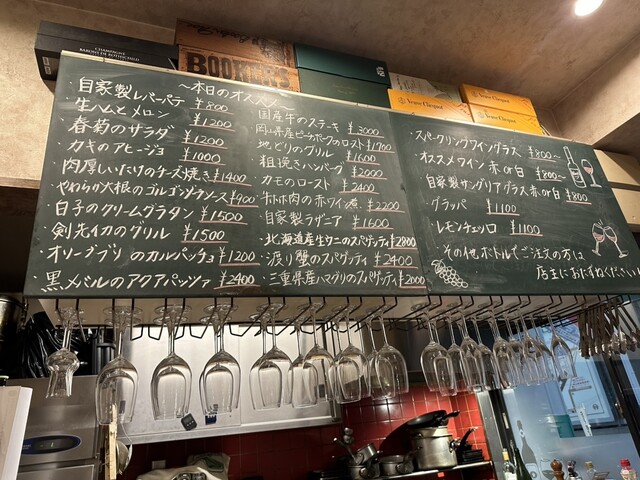 CHAMPAGNE
BARONS DE ROTHSCHILD
BOOKER'S
Veuve Clicquot
Veuve Clicquot
〜本日のオススメ〜
・自家製レバーパテ ¥800
・生ハムとメロン ¥1200
・春菊のサラダ ¥1200
・カキのアヒージョ ¥1000
・肉厚しいたけのチーズ焼き ¥1400
・やわらか大根のゴルゴンゾーラソース ¥900
・白子のクリームグラタン ¥1500
・剣先イカのグリル ¥1500
・オリーブブリのカルパッチョ ¥1200
・黒メバルのアクアパッツァ ¥2400
・国産牛のステーキ ¥3000
・岡山県産ピーチポークのロースト ¥1700
・地どりのグリル ¥1600
・粗挽きハンバーグ ¥2000
・カモのロースト ¥2400
・ホホ肉の赤ワイン煮 ¥2200
・自家製ラザニア ¥1600
・北海道産生ウニのスパゲッティ ¥2800
・渡り蟹のスパゲッティ ¥2400
・三重県産ハマグリのスパゲッティ ¥2000
・スパークリングワイングラス ¥800〜
・オススメワイン 赤or白 ¥800〜
・自家製サングリアグラス 赤or白 ¥800
・グラッパ ¥1100
・レモンチェッロ ¥1100
・その他ボトルでご注文の方は
店主におたずねください